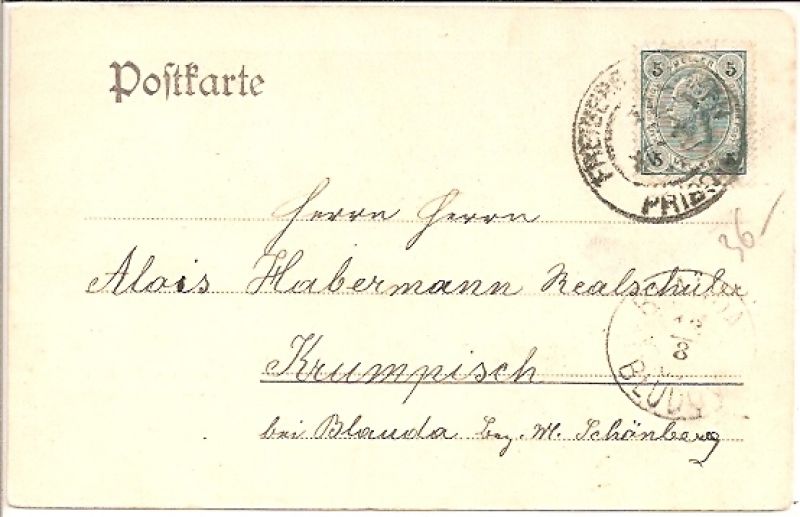 Postkarte
5 HELLER 5
5 5
FREIBERG
PŘIBOR
36-
Herrn Herrn
Alois Habermann Realschüler
Krumpisch
bei Blauda bez. M. Schönberg
8
BLUDOV